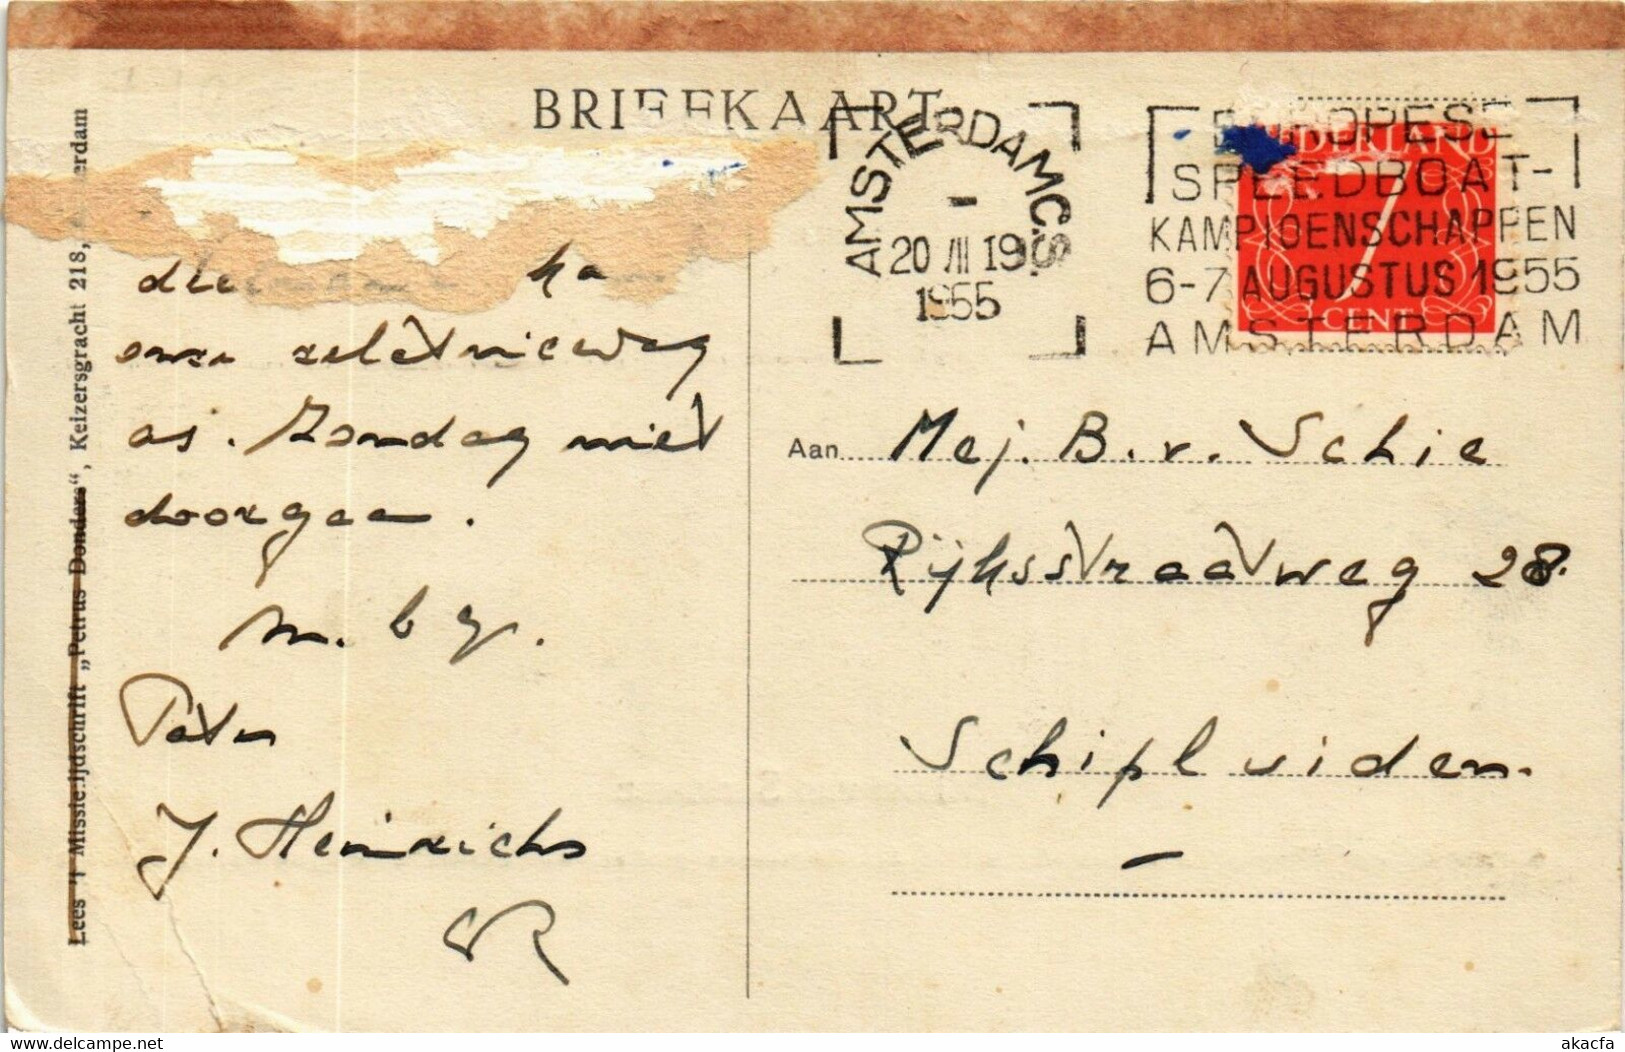 BRIEFKAART
AMSTERDAM C.S.
20 VII 19
1955
EUROPESE
SPEEDBOAT-
KAMPIOENSCHAPPEN
6-7 AUGUSTUS 1955
AMSTERDAM
NEDERLAND
7
CENT
as. Zondag niet
doorgaa.
m. b gr.
Pater
J. Heinrichs
Aan Mej. B. v. Schie
Rijksstraatweg 28.
Schipluiden.
Lees 't Missietijdschrift „Petrus Donders", Keizersgracht 218, Amsterdam
akacfa